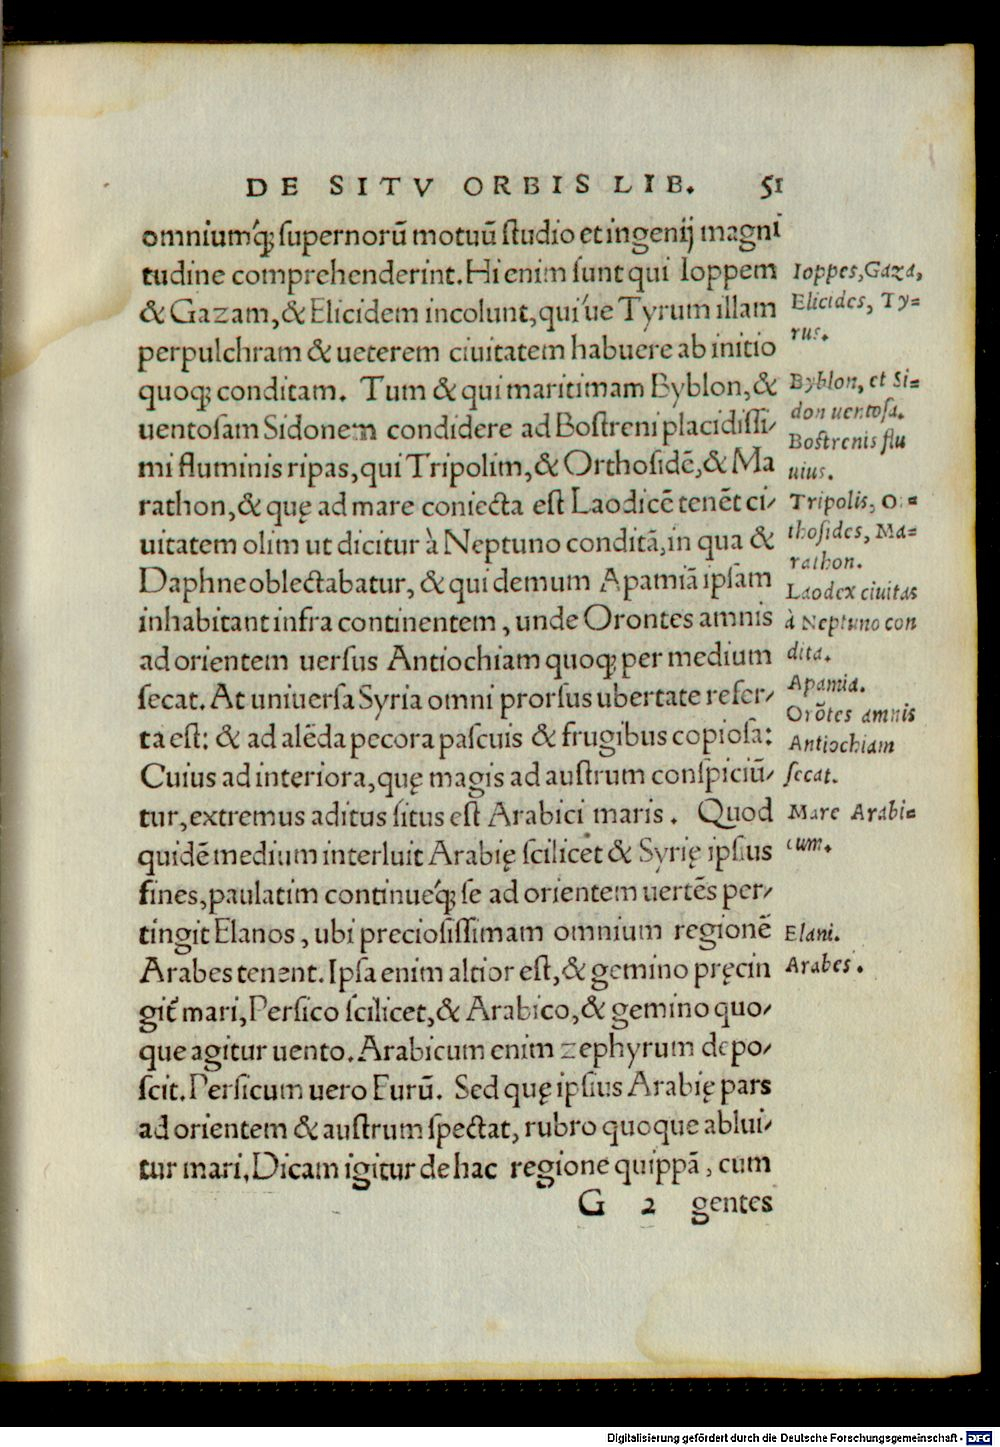 DE SITV ORBIS LIB. 51
omniumq́; supernorū motuū studio et ingenij magni
tudine comprehenderint. Hi enim sunt qui Ioppem
& Gazam, & Elicidem incolunt, qui´ue Tyrum illam
perpulchram & ueterem ciuitatem habuere ab initio
quoq; conditam. Tum & qui maritimam Byblon, &
uentosam Sidonem condidere ad Bostreni placidissi/
mi fluminis ripas, qui Tripolim, & Orthosidē, & Ma
rathon, & quę ad mare coniecta est Laodicē tenēt ci/
uitatem olim ut dicitur à Neptuno conditā, in qua &
Daphne oblectabatur, & qui demum Apamiā ipsam
inhabitant infra continentem, unde Orontes amnis
ad orientem uersus Antiochiam quoq; per medium
secat. At uniuersa Syria omni prorsus ubertate refer/
ta est: & ad alēda pecora pascuis & frugibus copiosa:
Cuius ad interiora, quę magis ad austrum conspiciū/
tur, extremus aditus situs est Arabici maris. Quod
quidē medium interluit Arabię scilicet & Syrię ipsius
fines, paulatim continueq́; se ad orientem uertēs per/
tingit Elanos, ubi preciosissimam omnium regionē
Arabes tenent. Ipsa enim altior est, & gemino pręcin
git᷑ mari, Persico scilicet, & Arabico, & gemino quo/
que agitur uento. Arabicum enim zephyrum depo/
scit. Persicum uero Eurū. Sed quę ipsius Arabię pars
ad orientem & austrum spectat, rubro quoque ablui/
tur mari. Dicam igitur de hac regione quippā, cum
G 2 gentes
Ioppes, Gaza,
Elicides, Ty=
rus.
Byblon, et Si=
don uentosa.
Bostrenis flu
uius.
Tripolis, O.=
thosides, Ma=
rathon.
Laodex ciuitas
à Neptuno con
dita.
Apamia.
Orōtes amnis
Antiochiam
secat.
Mare Arabi=
cum.
Elani.
Arabes.
Digitalisierung gefördert durch die Deutsche Forschungsgemeinschaft - DFG